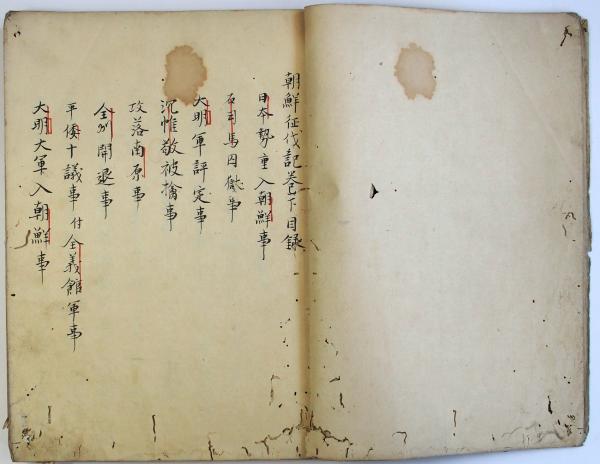 朝鮮征伐記巻下目録
日本勢重入朝鮮事
石司馬囚獄事
大明軍評定事
沉惟敬被擒事
攻落南原事
全州開退事
平倭十議事付全義館軍事
大明大軍入朝鮮事